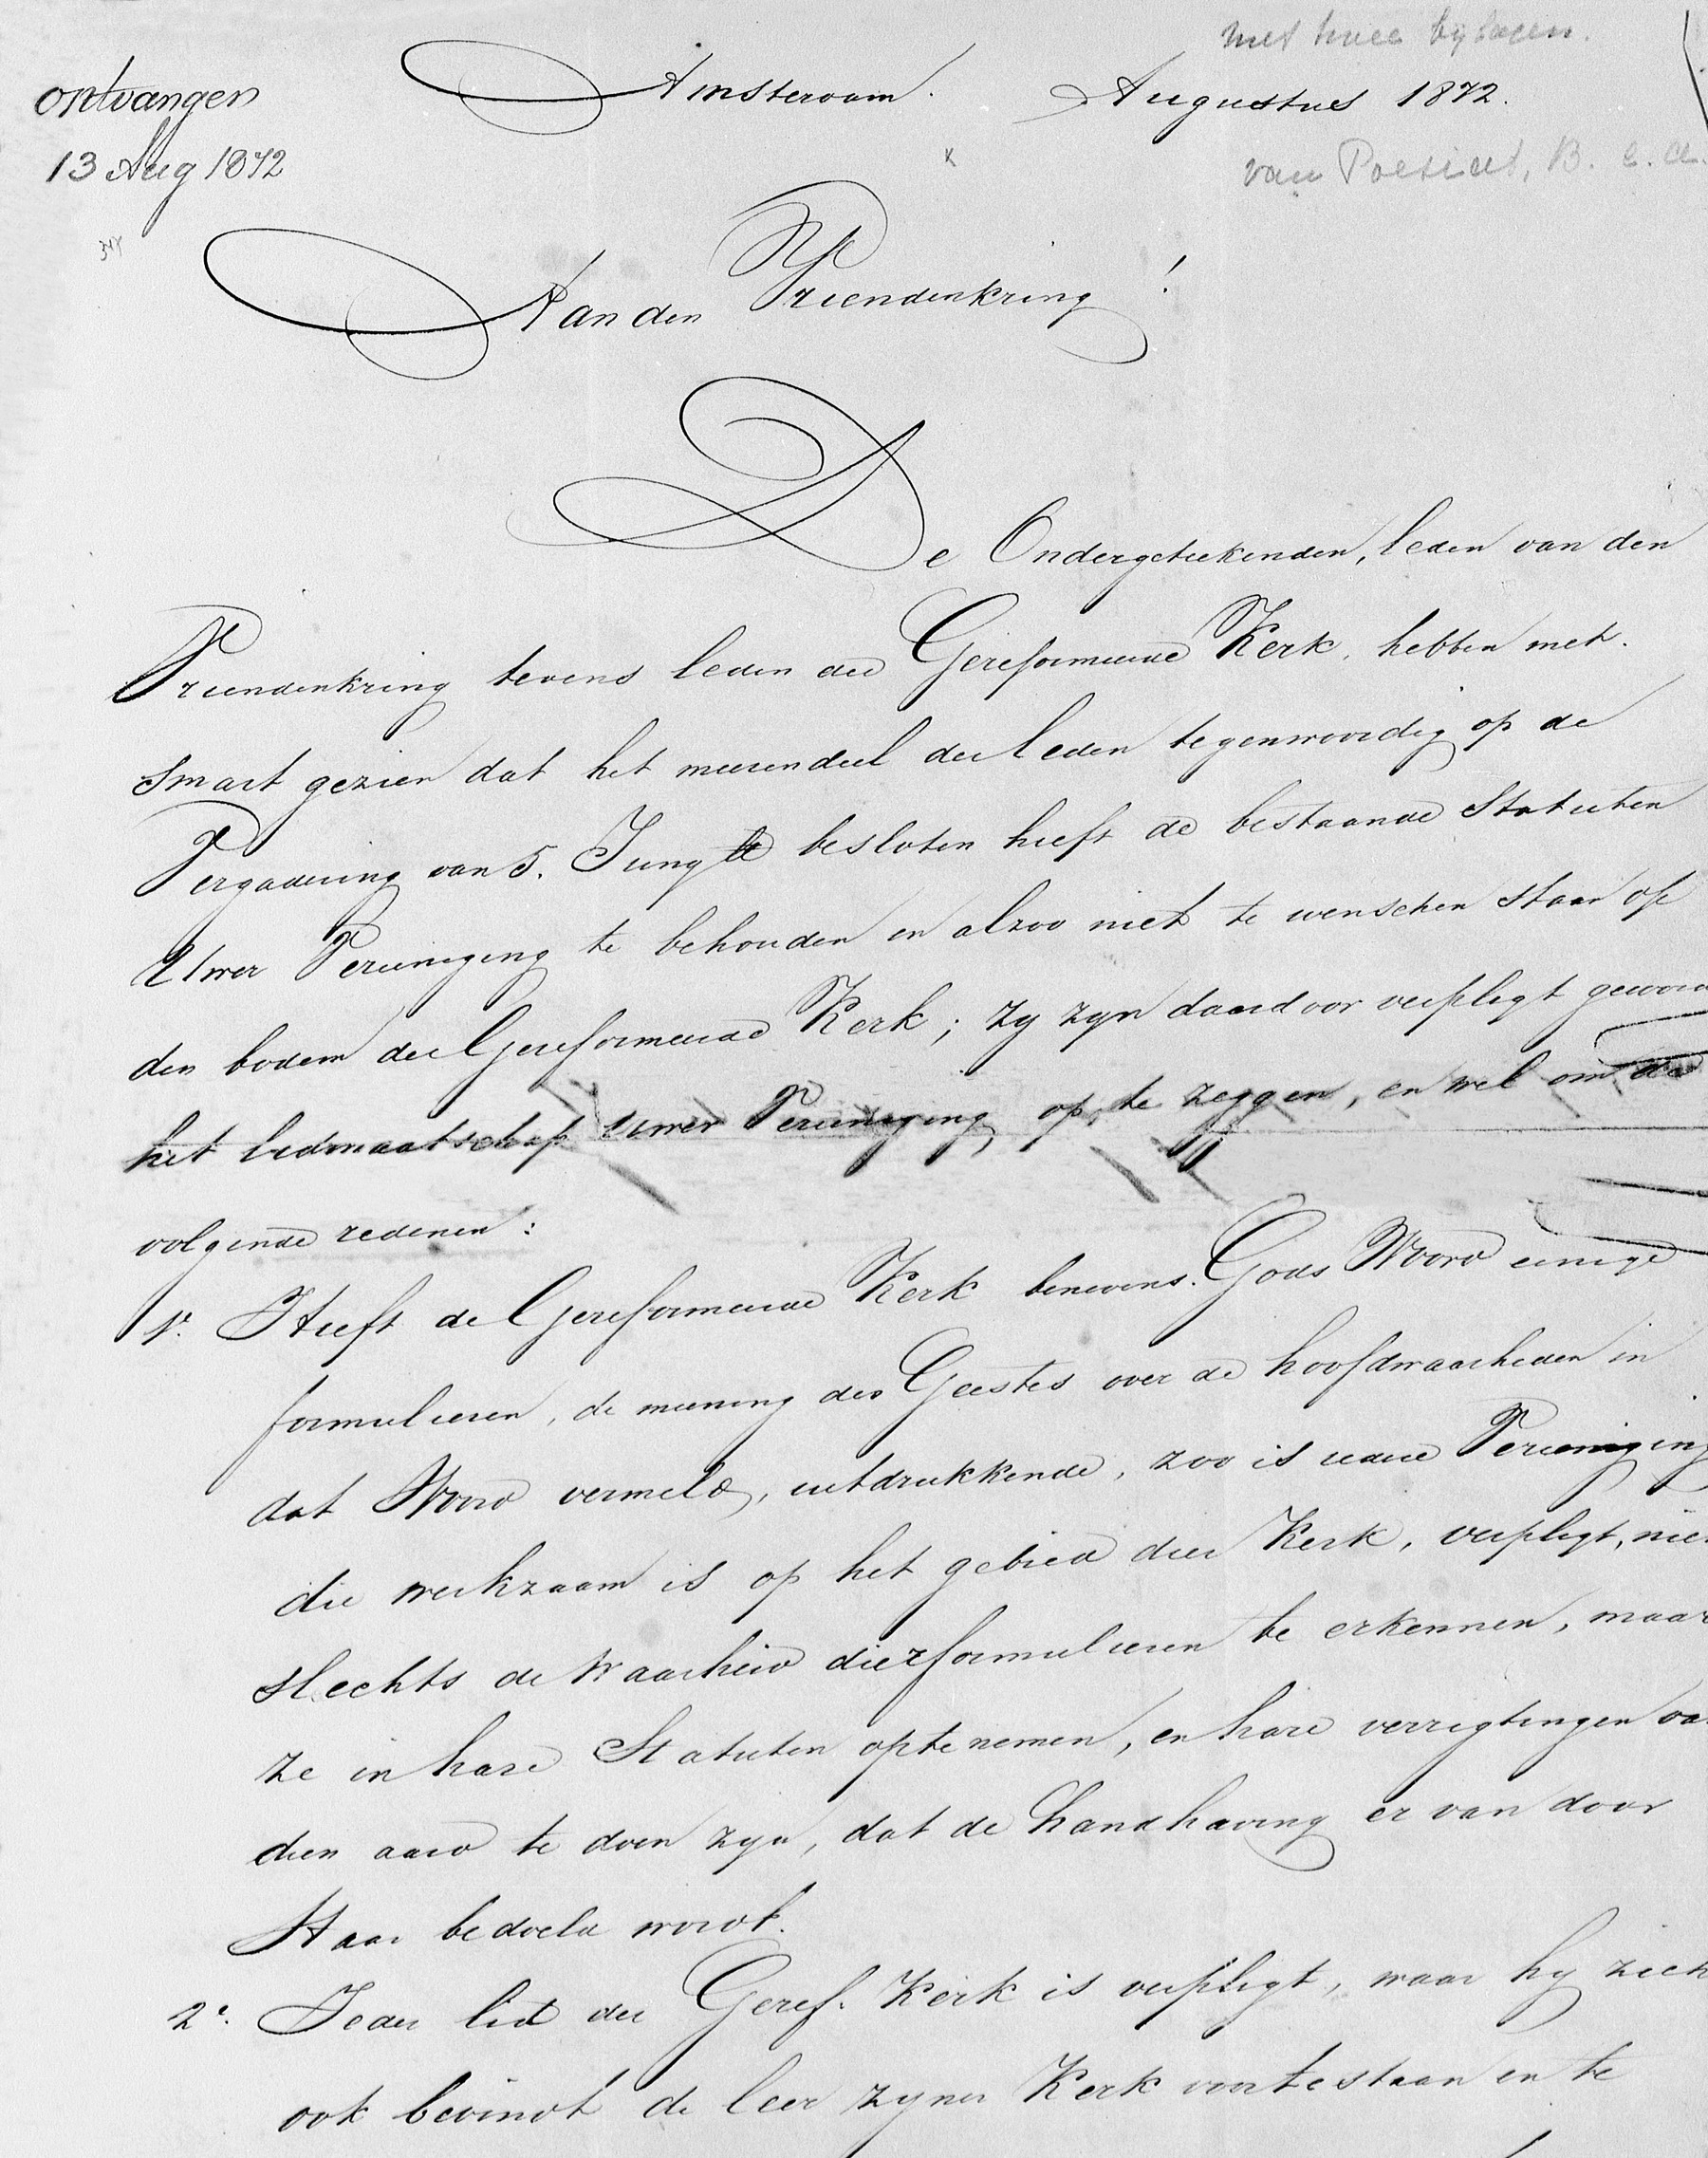 met twee bijlagen.
ontvangen Amsterdam. Augustus 1872.
13 Aug 1872
van B. C. A.
Aan den Vriendenkring!
De Ondergeteekenden, leden van den
Vriendenkring tevens leden der Gereformeerde Kerk, hebben met
smart gezien dat het meerendeel der leden tegenwoordig op de
Vergadering van 5. Juny ll besloten heeft de bestaande Statuten
Uwer Vereeniging te behouden en alzoo niet te wenschen staan op
den bodem der Gereformeerde Kerk; zy zyn daardoor verpligt
het lidmaatschap uwer Vereeniging op te zeggen, en wel om de
volgende redenen:
1e. Heeft de Gereformeerde Kerk benevens Gods Woord eenige
formulieren, de meening des Geestes over de hoofdwaarheden in
dat Woord vermeld, uitdrukkende, zoo is iedere Vereeniging
die werkzaam is op het gebied dier Kerk, verpligt, niet
slechts de waarheid dier formulieren te erkennen, maar
ze in hare Statuten opte nemen, en hare verrigtingen van
dien aard te doen zyn, dat de handhaving er van door
Haar bedoeld wordt.
2e. Ieder lid der Geref. Kerk is verpligt, waar hy zich
ook bevindt de leer zyner Kerk voortestaan en te